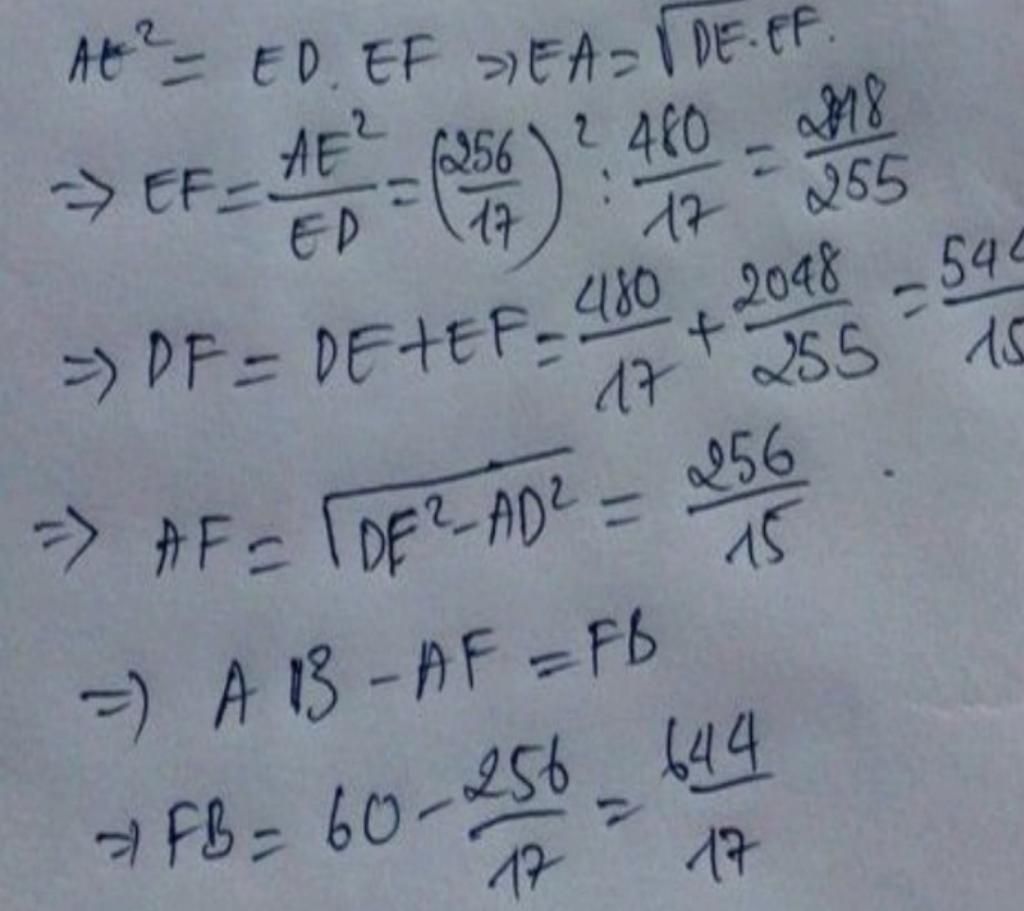 AE² = ED. EF => EA = √DE.EF.
=> EF = AE²/ED = (256/17)² : 480/17 = /255
=> DF = DE + EF = 480/17 + 2048/255 = 544/15
=> AF = √DF² - AD² = 256/15.
=> AB - AF = FB
=> FB = 60 - 256/17 = 644/17